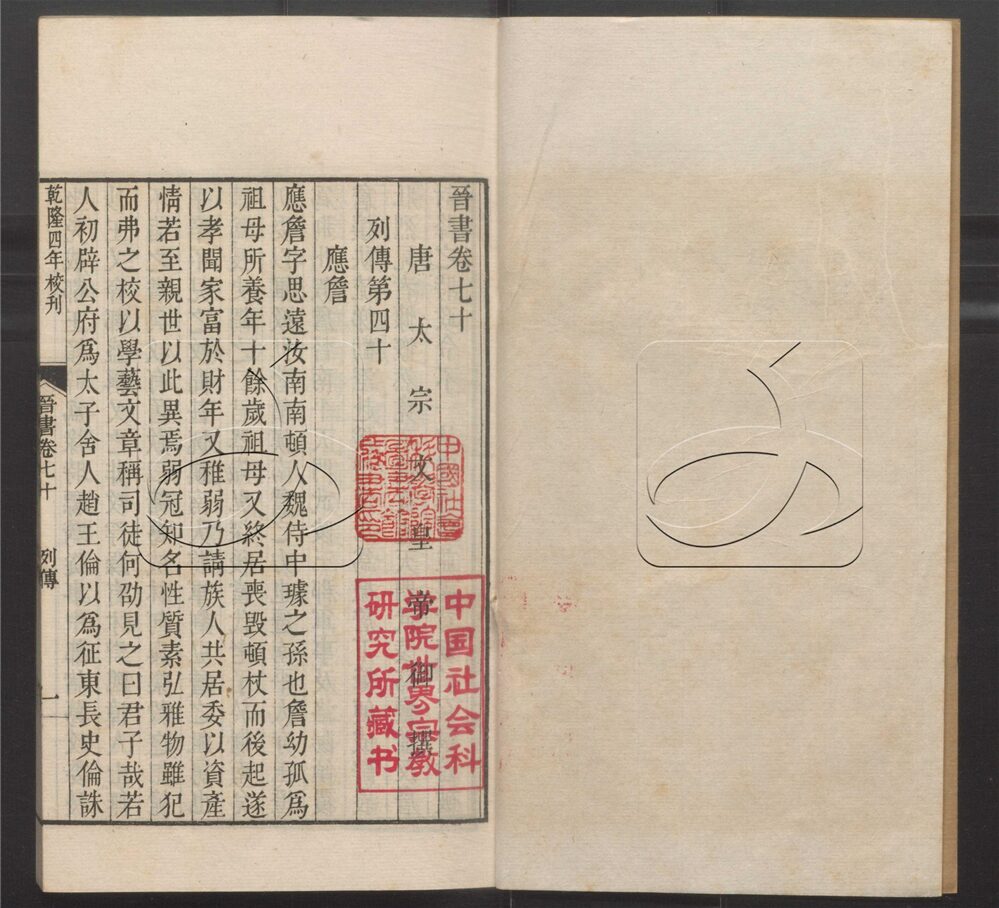 晉書卷七十
唐太宗文皇帝御撰
列傳第四十
應詹
應詹字思遠汝南南頓人魏侍中璩之孫也詹幼孤爲
祖母所養年十餘歲祖母又終居喪毀頓杖而後起遂
以孝聞家富於財年又稚弱乃請族人共居委以資產
情若至親世以此異焉弱冠知名性質素弘雅物雖犯
而弗之校以學藝文章稱司徒何劭見之曰君子哉若
人初辟公府爲太子舍人趙王倫以爲征東長史倫誅
乾隆四年校刊
晉書卷七十 列傳 一
中国社会科
学院世界宗教
研究所藏书
中國社會